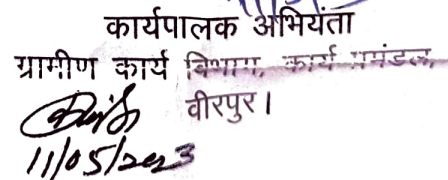 कार्यपालक अभियंता
ग्रामीण कार्य विभाग, कार्य प्रमंडल,
वीरपुर।
11/05/2023